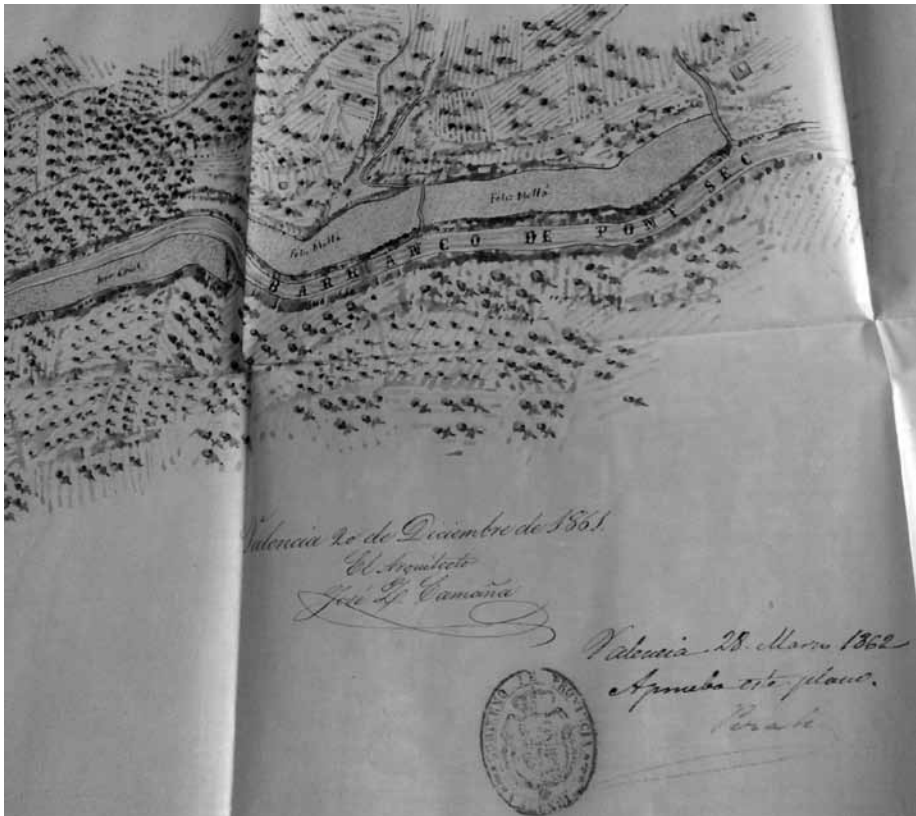 Felix Mollá
Felix Mollá
BARRANCO DE PONT SEC
Valencia 20 de Diciembre de 1861.
El Arquitecto
José Z. Camaña
Valencia 28. Marzo 1862
Apruebo este plano.
GOBIERNO DE PROVINCIA